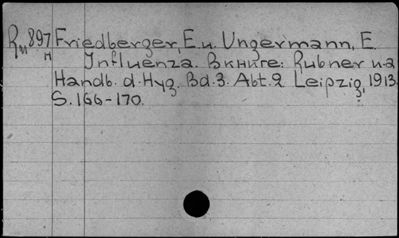 Ru897 Friedberger, E. u. Ungermann, E.
H Influenza. В книге: Rubner u.a.
Handb. d. Hyg. Bd. 3. Abt. 2 Leipzig, 1913.
S. 166-170.